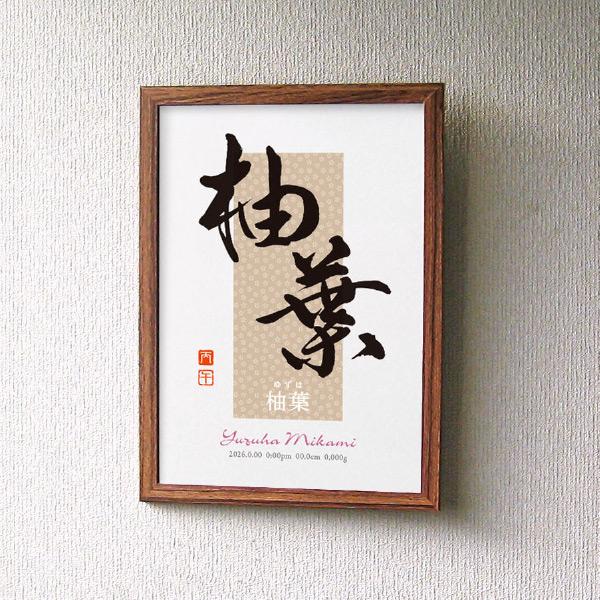 柚葉
丙
午
ゆずは
柚葉
Yuzuha Mikami
2026.0.00 0:00pm 00.0cm 0,000g